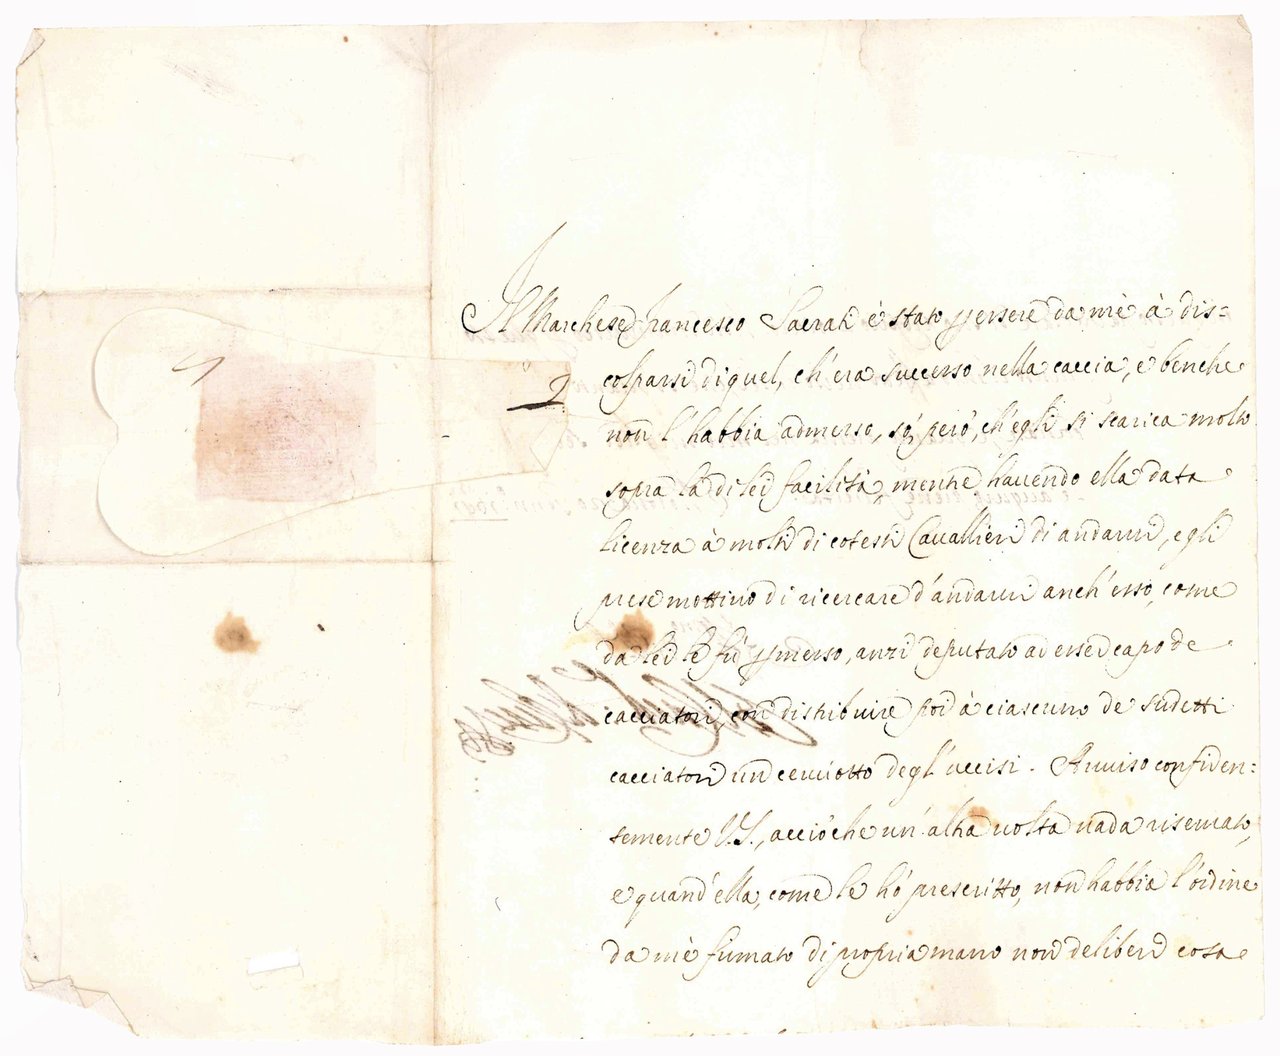 Il Marchese Francesco Sacrati è stato per essere da mè à dis=
colparsi di quel, ch'era successo nella caccia, e benche
non l'habbia admesso, sò però, ch'egli si scarica molto
sopra la di lei facilità, mentre hauendo ella data
licenza à molti di cotesti Cauallieri di andarui, egli
prese mottiuo di ricercare d'andarui anch'esso, come
da lei le fù permesso, anzi deputato ad esser capo de
cacciatori, con distribuire poi à ciascuno de sudetti
cacciatori un ceruiotto degl'uccisi. Auuiso confiden=
temente V.S., acciò che un'altra uolta uada riseruato,
e quand'ella, come le hò prescritto, non habbia l'ordine
da mè firmato di propria mano non deliberi cosa